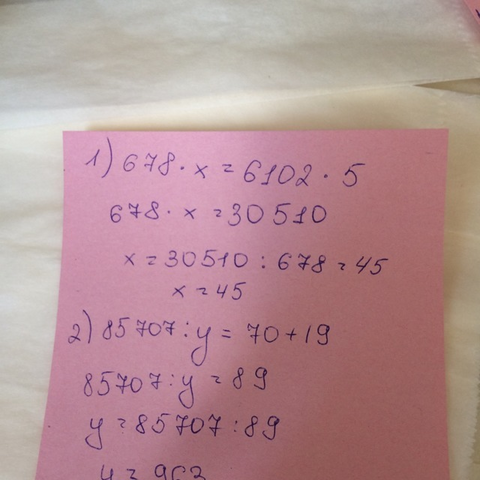 1) 678 · x = 6102 · 5
678 · x = 30510
x = 30510 : 678 = 45
x = 45
2) 85707 : y = 70 + 19
85707 : y = 89
y = 85707 : 89
y = 963